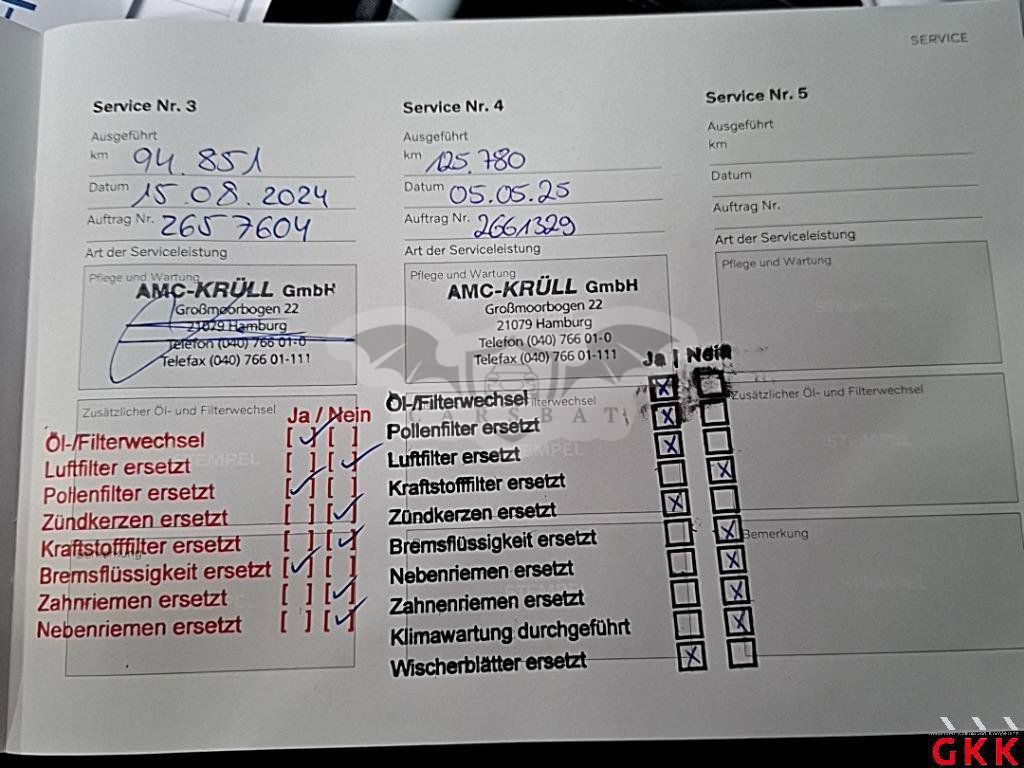 SERVICE
Service Nr. 3
Ausgeführt
km 94.851
Datum 15.08.2024
Auftrag Nr. 2657604
Art der Serviceleistung
Pflege und Wartung
AMC-KRÜLL GmbH
Großmoorbogen 22
21079 Hamburg
Telefon (040) 766 01-0
Telefax (040) 766 01-111
Zusätzlicher Öl- und Filterwechsel
Ja / Nein
Öl-/Filterwechsel [✓] [ ]
Luftfilter ersetzt [ ] [✓]
Pollenfilter ersetzt [✓] [ ]
Zündkerzen ersetzt [ ] [✓]
Kraftstofffilter ersetzt [ ] [✓]
Bremsflüssigkeit ersetzt [✓] [ ]
Zahnriemen ersetzt [ ] [✓]
Nebenriemen ersetzt [ ] [✓]
STEMPEL
Service Nr. 4
Ausgeführt
km 125.780
Datum 05.05.25
Auftrag Nr. 2661329
Art der Serviceleistung
Pflege und Wartung
AMC-KRÜLL GmbH
Großmoorbogen 22
21079 Hamburg
Telefon (040) 766 01-0
Telefax (040) 766 01-111
Ja | Nein
Öl-/Filterwechsel
Filterwechsel
CARSBAT
Pollenfilter ersetzt
Luftfilter ersetzt
Kraftstofffilter ersetzt
Zündkerzen ersetzt
Bremsflüssigkeit ersetzt
Nebenriemen ersetzt
Zahnenriemen ersetzt
Klimawartung durchgeführt
Wischerblätter ersetzt
Service Nr. 5
Ausgeführt
km
Datum
Auftrag Nr.
Art der Serviceleistung
Pflege und Wartung
Zusätzlicher Öl- und Filterwechsel
STEMPEL
Bemerkung
GKK